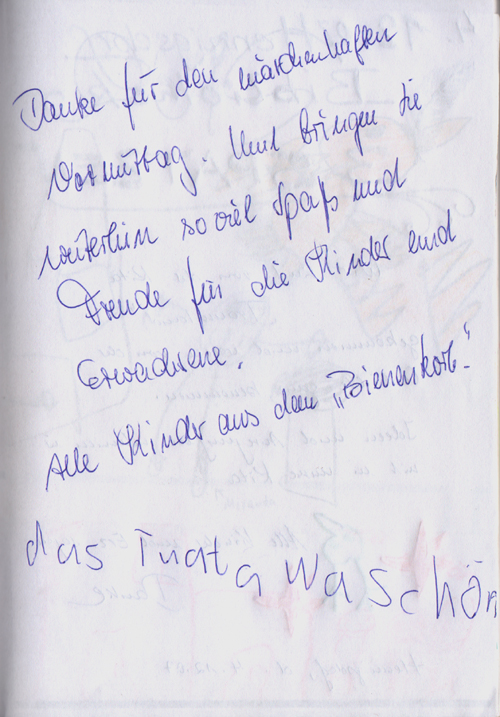 Danke für den märchenhaften
Vormittag. Und bringen Sie
weiterhin soviel Spaß und
Freude für die Kinder und
Erwachsene.
Alle Kinder aus dem „Bienenkorb“
das Tuata wa schön